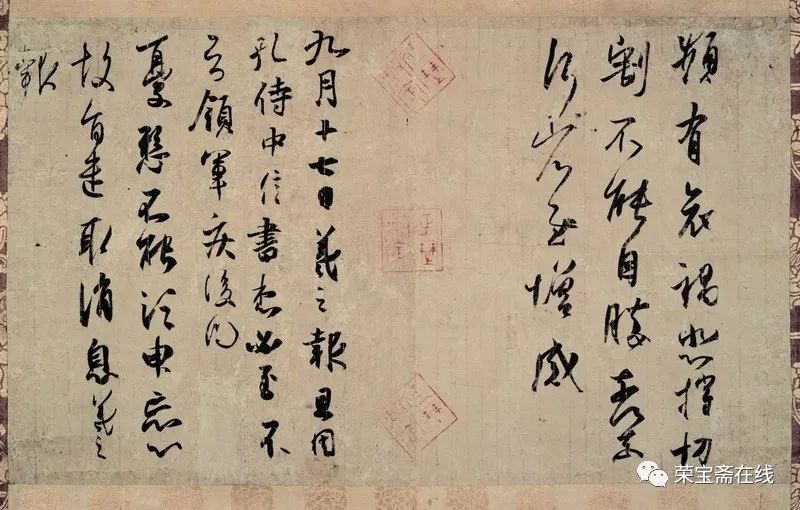 頻有哀禍悲摧切
割不能自勝奈何奈
何省慰增感
九月廿七日羲之報且因
孔侍中信書想必至不
知領軍疾後問
憂懸不能須臾忘心
故旨遣取消息羲之
報
荣宝斋在线